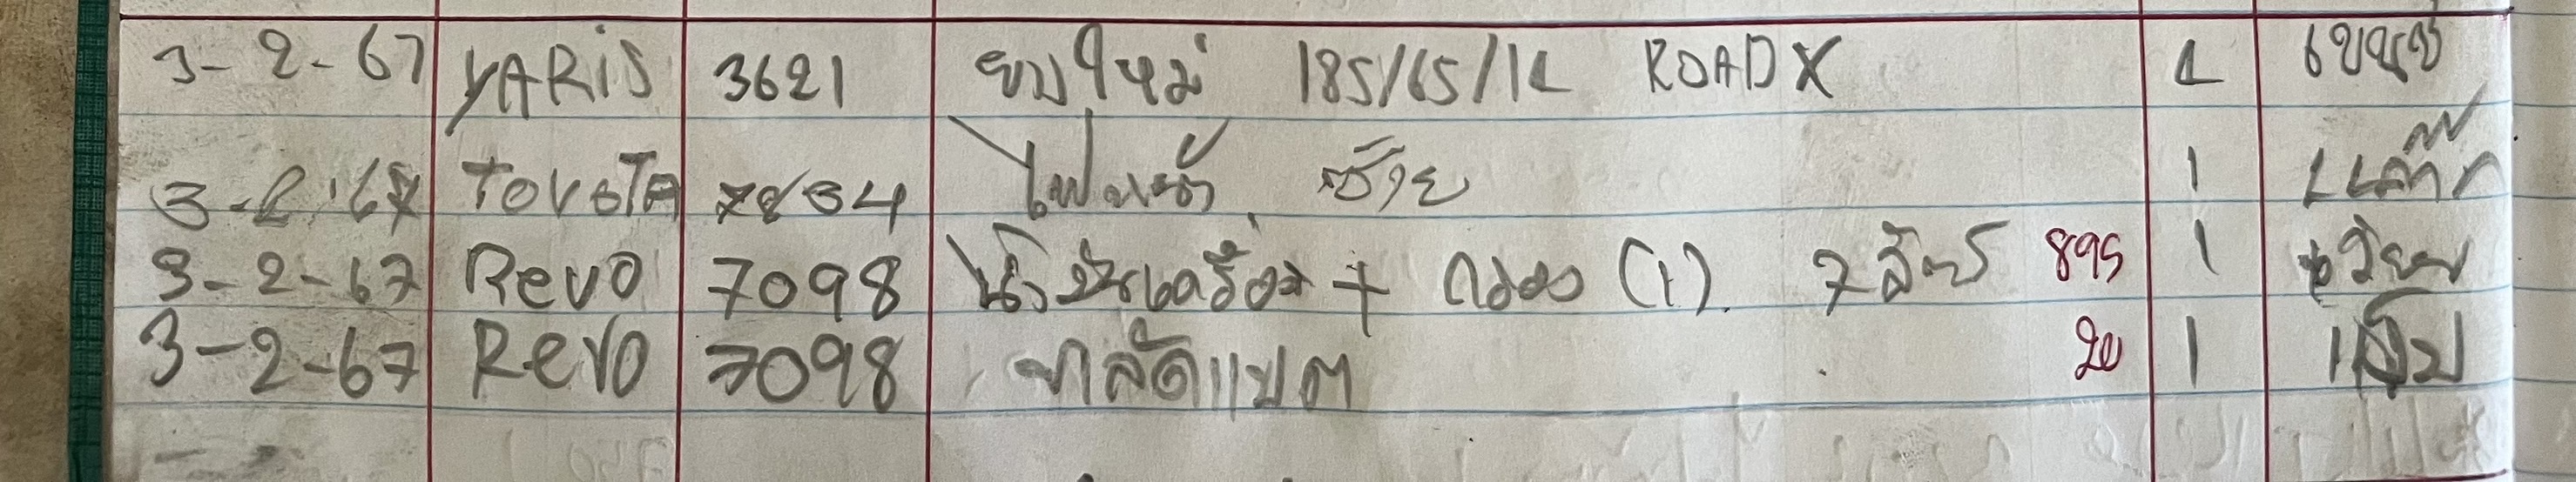 3-2-67 YARiS 3621 ยางใหม่ 185/65/14 ROADX 4
3-2-67 TOYOTA 7834 ไฟหน้า ซ้าย 1
3-2-67 Revo 7098 น้ำมันเครื่อง + กรอง (1). 7 ลิตร 895 1
3-2-67 Revo 7098 ปาลัดแบต 20 1